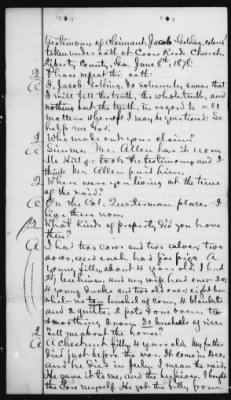 Testimony of Claimant, Jacob Golding, colored
taken under oath at Coxes Roads Church,
Liberty County, Ga. June 8th, 1878:
Q Please repeat the oath:
A I, Jacob Golding, do solemnly swear that
I will tell the truth, the whole truth, and
nothing but the truth, in regard to all
matters whereof I may be questioned: So
help me God.
Q Who made out your claim?
A Mr. Allen has it
took the testimony and I
think Mr. Allen paid him.
Q Where were you living at the time
of the raid?
A On the Col. Quarterman place: I
live there now.
Q What kinds of property did you have
then?
A I had two cows and two calves, two
sows, and each had five pigs. A
young filly, about 4 years old, I had
beehives, and my wife had over 30,
4 young ducks and two old ones: eight bu-
shels ten bushel of corn, 4 blankets
and 2 quilts, 2 pots & one oven, two
smoothing irons, 30 bushels of rice:
Q Tell me about the horse?
A A chestnut filly, 4 years old. My father
died just before the war. It came in Dec.
and he died in Feby, I mean he said.
He gave it to me, and the beehives, I bought
the cows myself. He got the filly from